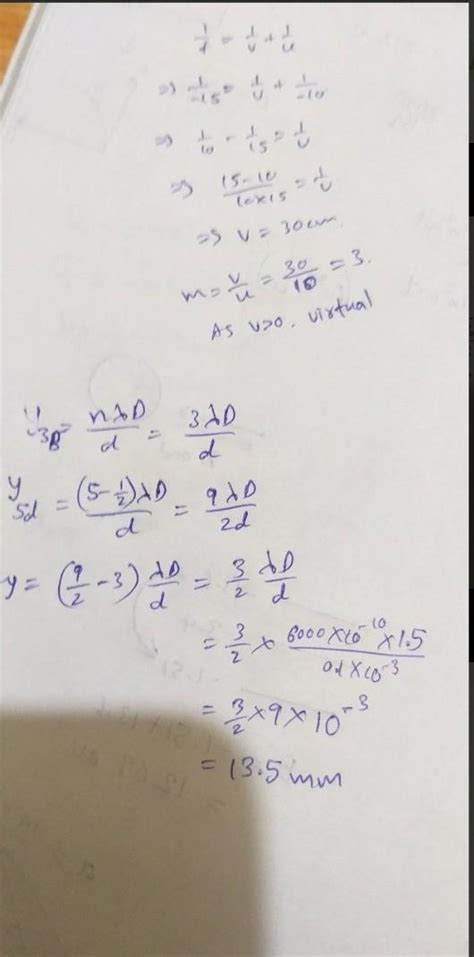 1/f = 1/v + 1/u
=> 1/-15 = 1/v + 1/-10
=> 1/10 - 1/15 = 1/v
=> (15-10)/(10×15) = 1/v
=> v = 30cm.
m = v/u = 30/10 = 3.
As v>0. virtual
y3B = nλD/d = 3λD/d
y5d = (5-1/2)λD/d = 9λD/2d
y = (9/2 - 3) λD/d = 3/2 λD/d
= 3/2 × (6000×10^-10 ×1.5)/(0.1×10^-3)
= 3/2 × 9 × 10^-3
= 13.5 mm